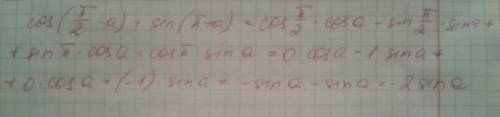 cos(π/2 · a) + sin(π+a) = cos π/2 · cos a − sin π/2 · sin a +
+ sin π · cos a + cos π · sin a = 0 · cos a − 1 · sin a +
+ 0 · cos a + (−1) · sin a = − sin a − sin a = −2 sin a